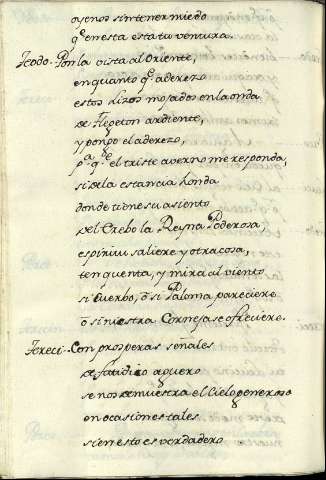 oyenos sin tener miedo
q̃ en esta esta tu ventura.
Teodo. Pon la vista al Oriente,
en quanto q̃ aderezo
estos lizos mojados en la onda
de Flegeton ardiente,
y pongo el aderezo,
p.ª q̃ el triste averno me responda,
si de la estancia honda
donde tiene su asiento
del Erebo la Reyna Poderosa,
espiritu saliere y otra cosa,
ten quenta, y mira al viento
si Cuerbo, ō si Paloma pareciere
ō siniestra Corneja se ofreciere.
Tereci. Con prosperas señales
de fatidico aguero
se nos demuestra el Cielo generoso
en ocasiones tales
si en esto es verdadero